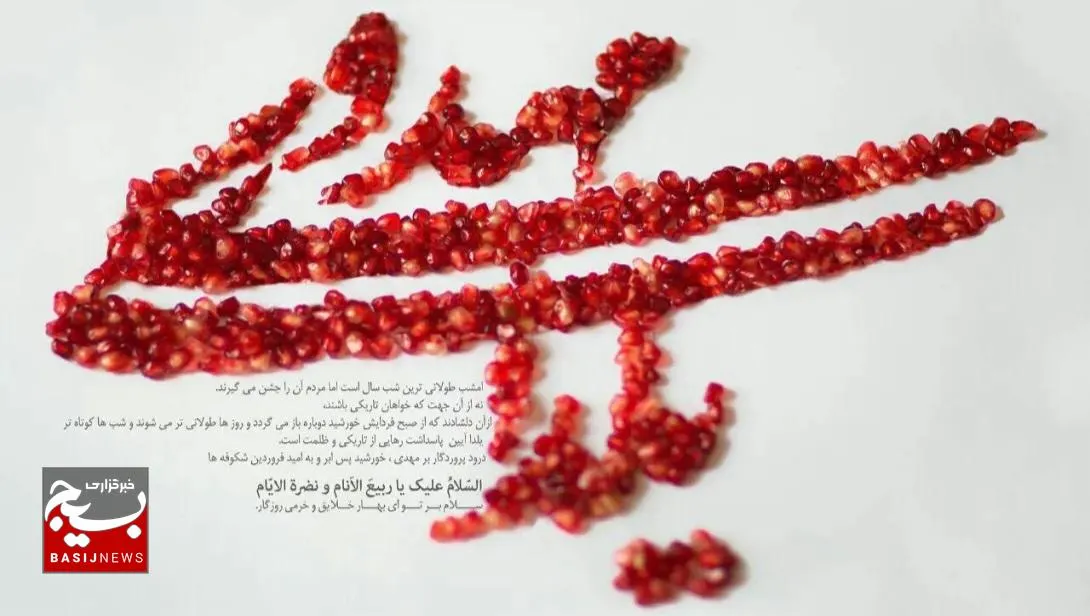 امشب طولانی ترین شب سال است اما مردم آن را جشن می گیرند.
نه از آن جهت که خواهان تاریکی باشند،
ازآن دلشادند که از صبح فردایش خورشید دوباره باز می گردد و روز ها طولانی تر می شوند و شب ها کوتاه تر
یلدا آیین پاسداشت رهایی از تاریکی و ظلمت است.
درود پروردگار بر مهدی ، خورشید پس ابر و به امید فروردین شکوفه ها
السّلامُ علیک یا ربیعَ الاَنام و نضرة الایّام
سلام بر تو ای بهار خلایق و خرمی روزگار.
خبرگزاری
بسیج
BASIJNEWS